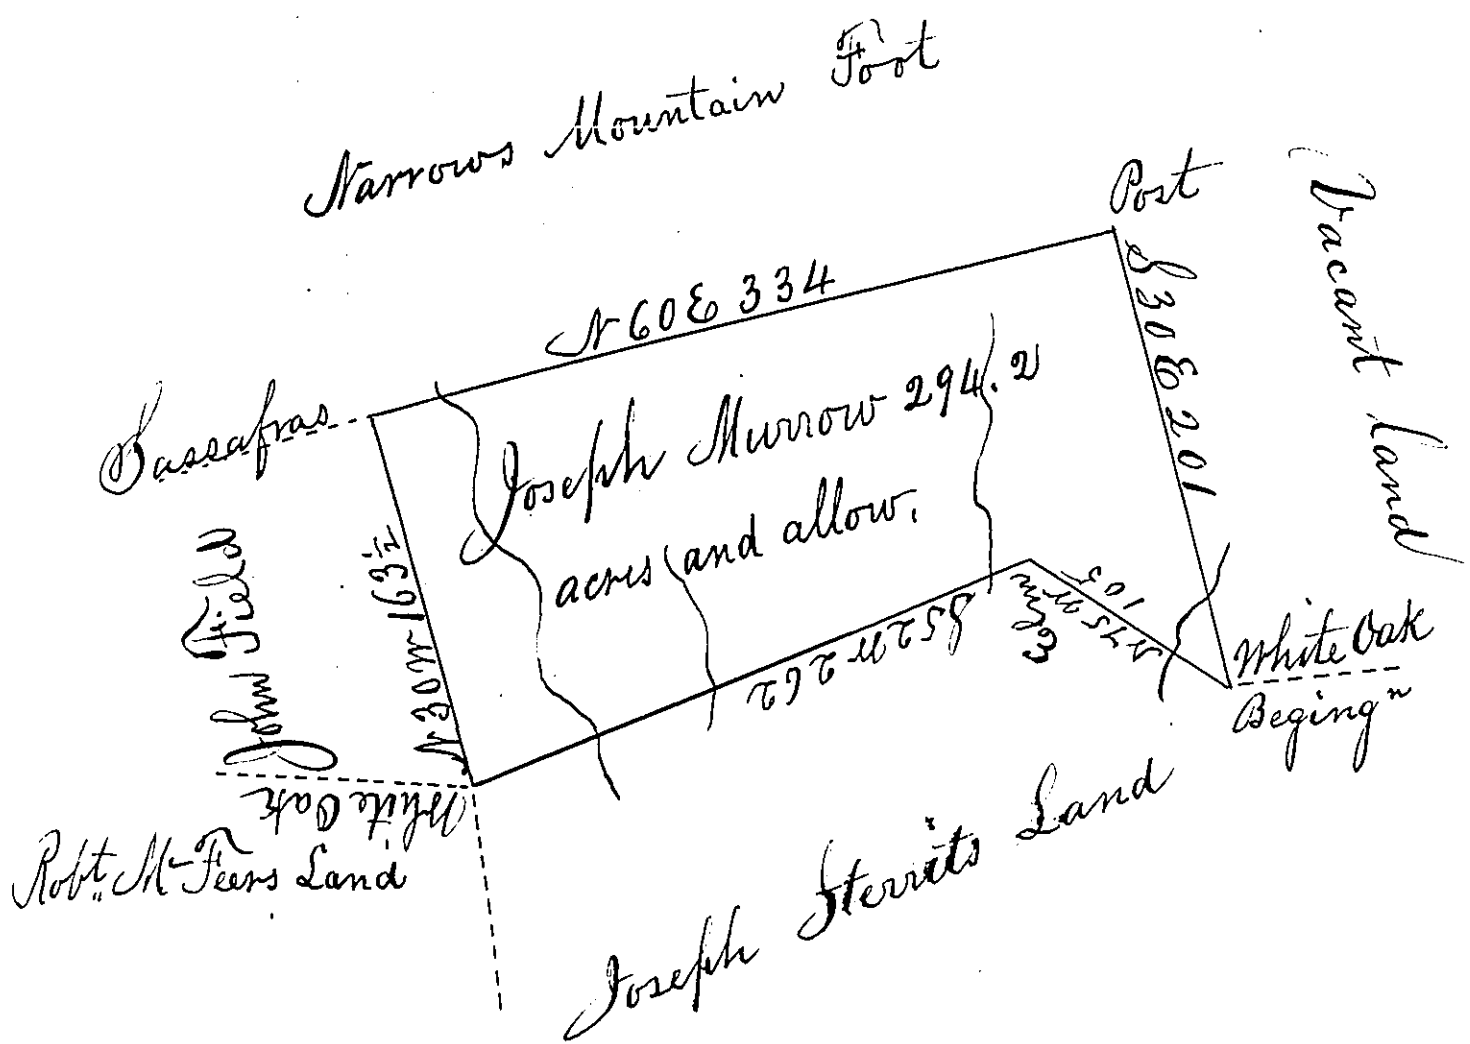 Narrows Mountain Foot
Post
Vacant Land
N 60 E 334
S 30 E 201
Sassafras
Joseph Murrow 294.2
acres and allow.
John Field
N 30 W 163 1/2
S 52 W 262
Elm
N 75 W
105
White Oak
Beging.n
White Oak
Robt. McFeers Land
Joseph Sterrits Land